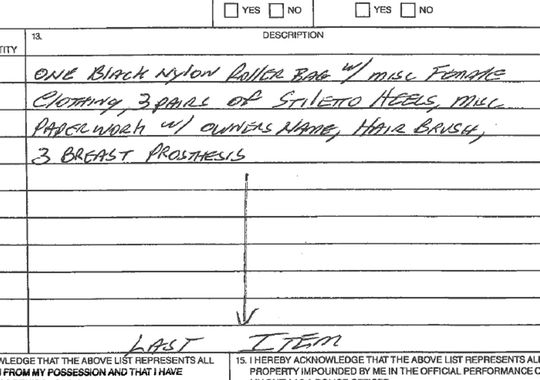 YES NO YES NO
TITY 13. DESCRIPTION
ONE BLACK NYLON ROLLER BAG W/ MISC FEMALE
CLOTHING, 3 PAIRS OF STILETTO HEELS, MISC
PAPERWORK W/ OWNERS NAME, HAIR BRUSH,
3 BREAST PROSTHESIS
LAST ITEM
WLEDGE THAT THE ABOVE LIST REPRESENTS ALL 15. I HEREBY ACKNOWLEDGE THAT THE ABOVE LIST REPRESENTS AL
FROM MY POSSESSION AND THAT I HAVE PROPERTY IMPOUNDED BY ME IN THE OFFICIAL PERFORMANCE O